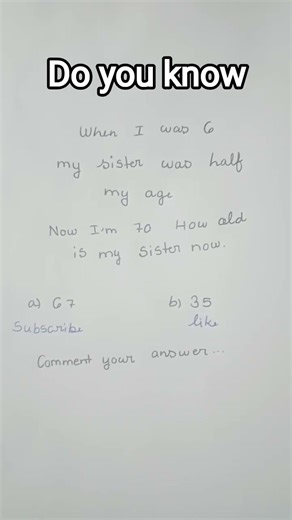 Do you know
When I was 6
my sister was half
my age
Now I'm 70 How old
is my sister now.
a) 67 b) 35
Subscribe like
Comment your answer...